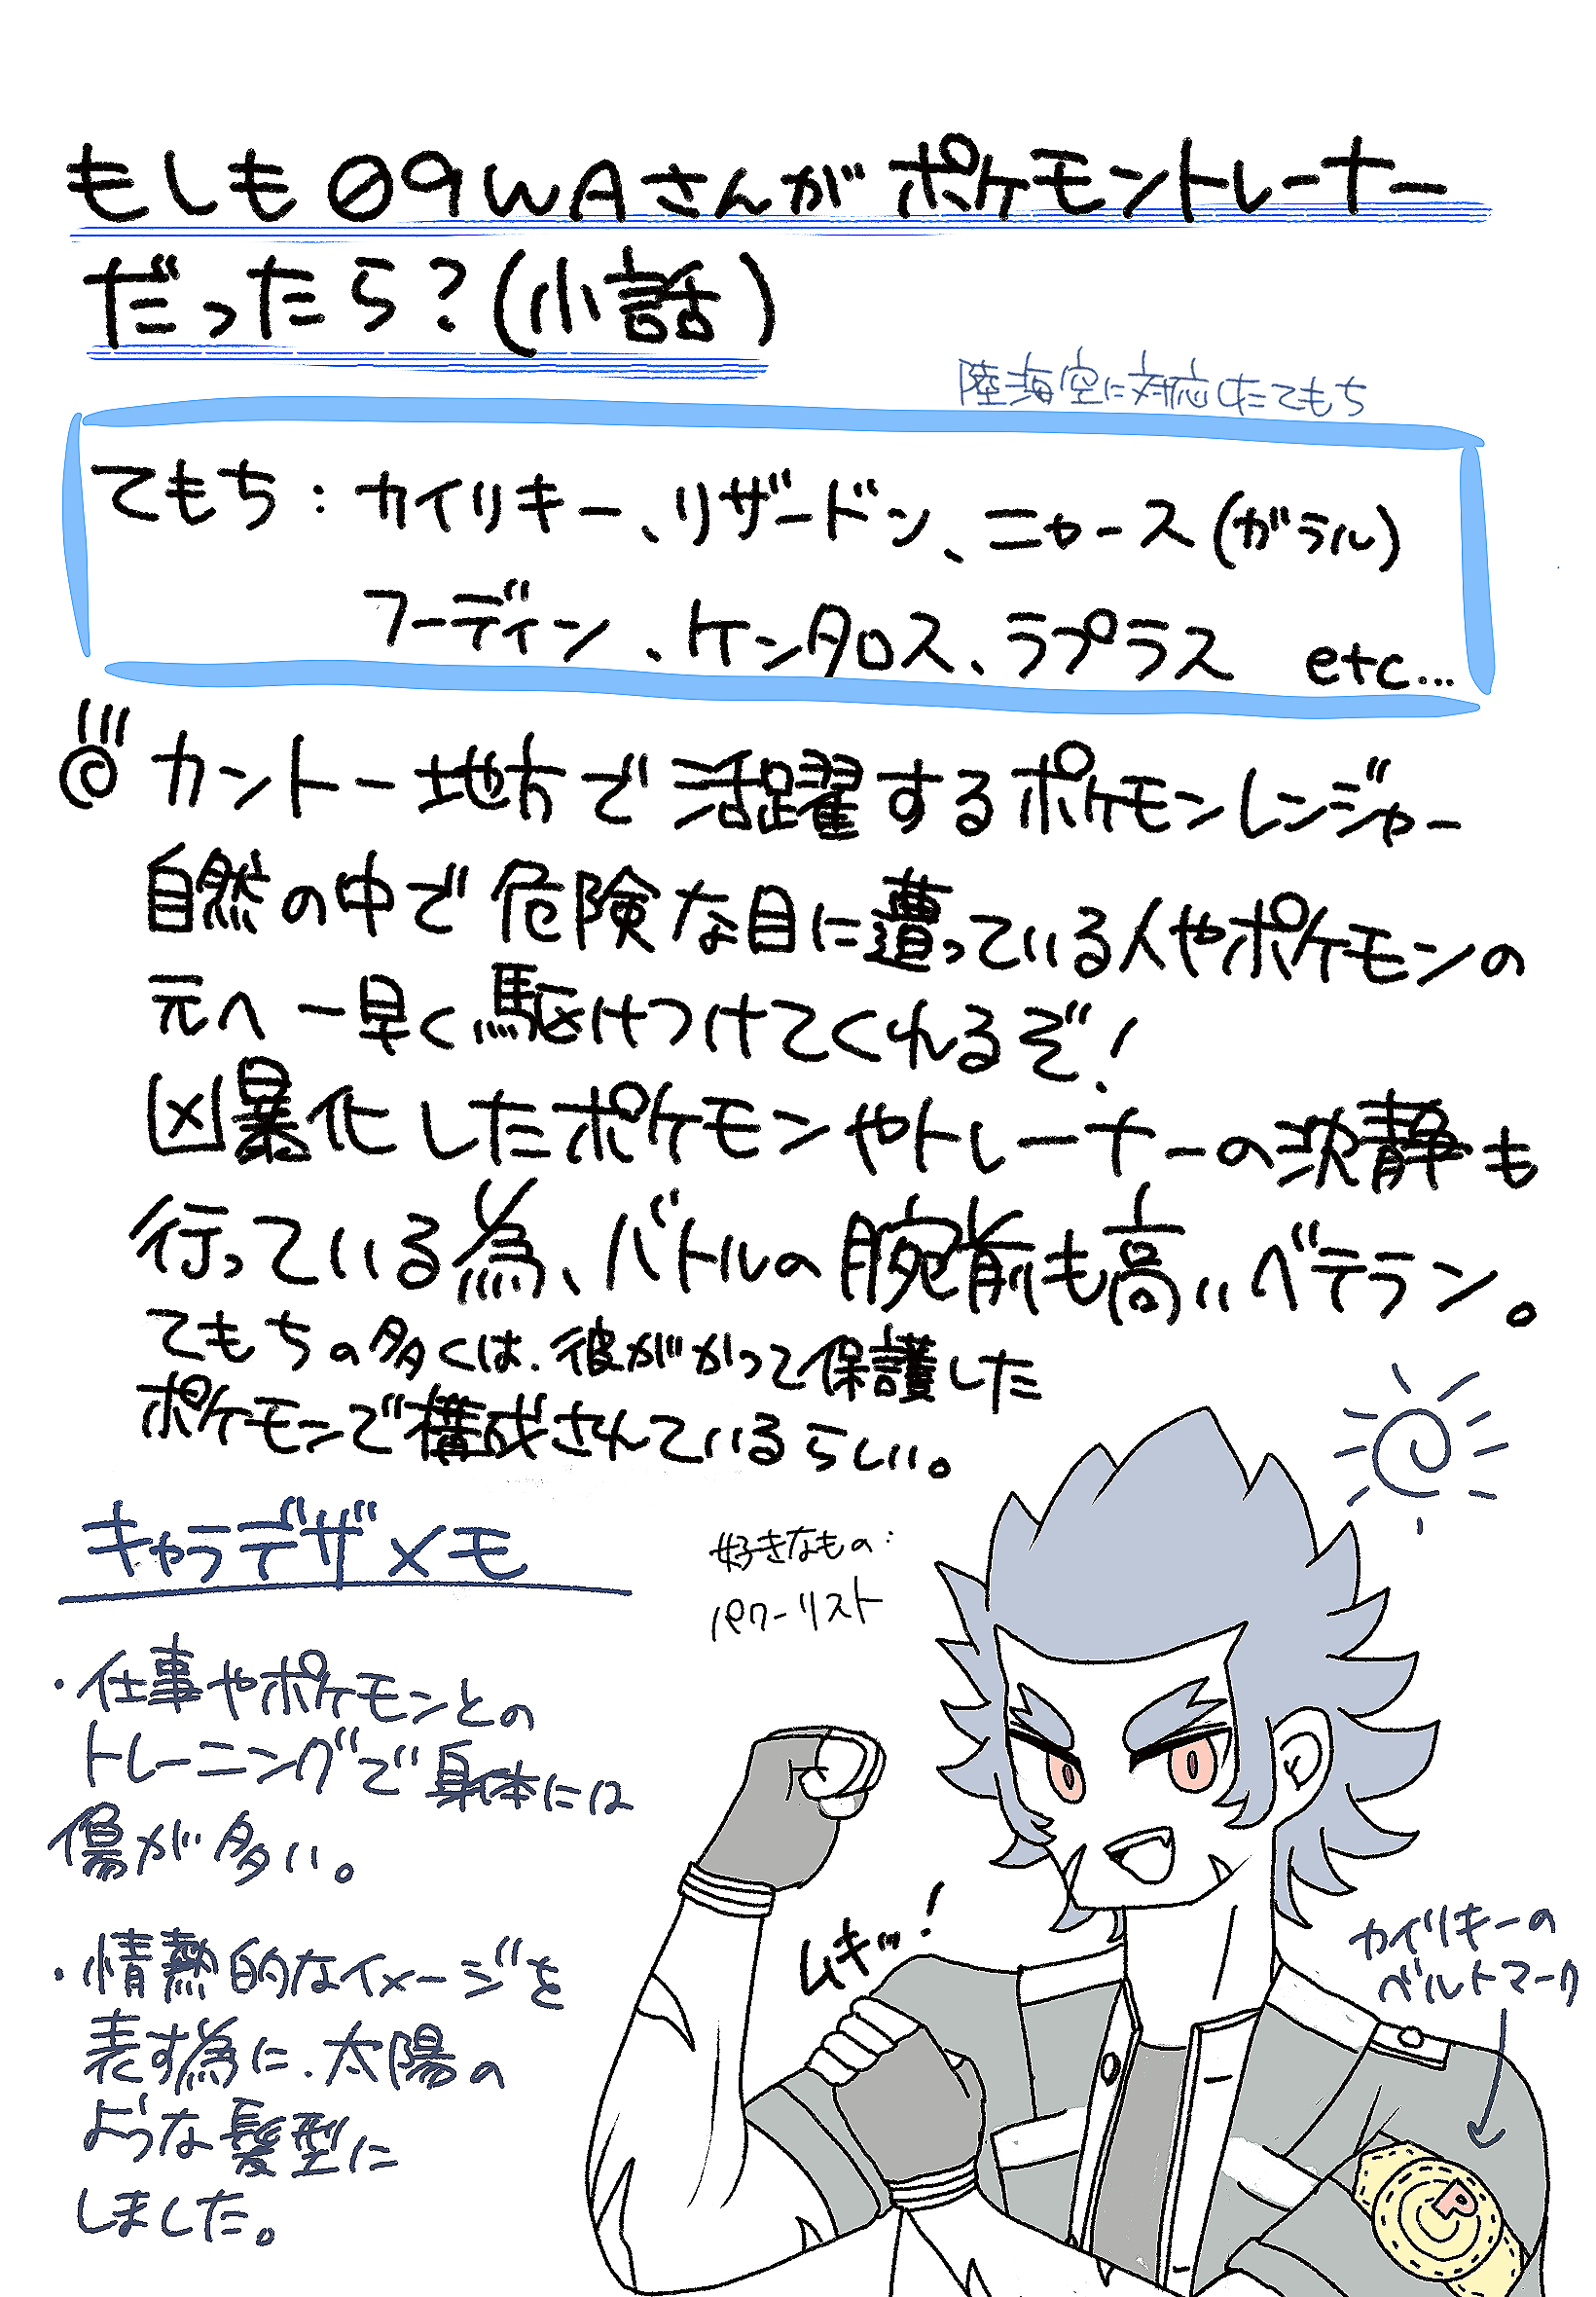 もしも09WAさんがポケモントレーナー
だったら?(小話)
陸海空に対応したてもち
てもち:カイリキー、リザードン、ニャース(ガラル)
フーディン、ケンタロス、ラプラス etc...
カントー地方で活躍するポケモンレンジャー
自然の中で危険な目に遭っている人やポケモンの
元へ一早く駆けつけてくれるぞ!
凶暴化したポケモンやトレーナーの沈静も
行っている為、バトルの腕前も高いベテラン。
てもちの多くは、彼がかつて保護した
ポケモンで構成されているらしい。
キャラデザメモ
好きなもの:
パワーリスト
・仕事やポケモンとの
トレーニングで身体には
傷が多い。
ムキッ!
カイリキーの
ベルトマーク
・情熱的なイメージを
表す為に、太陽の
ような髪型に
しました。
P